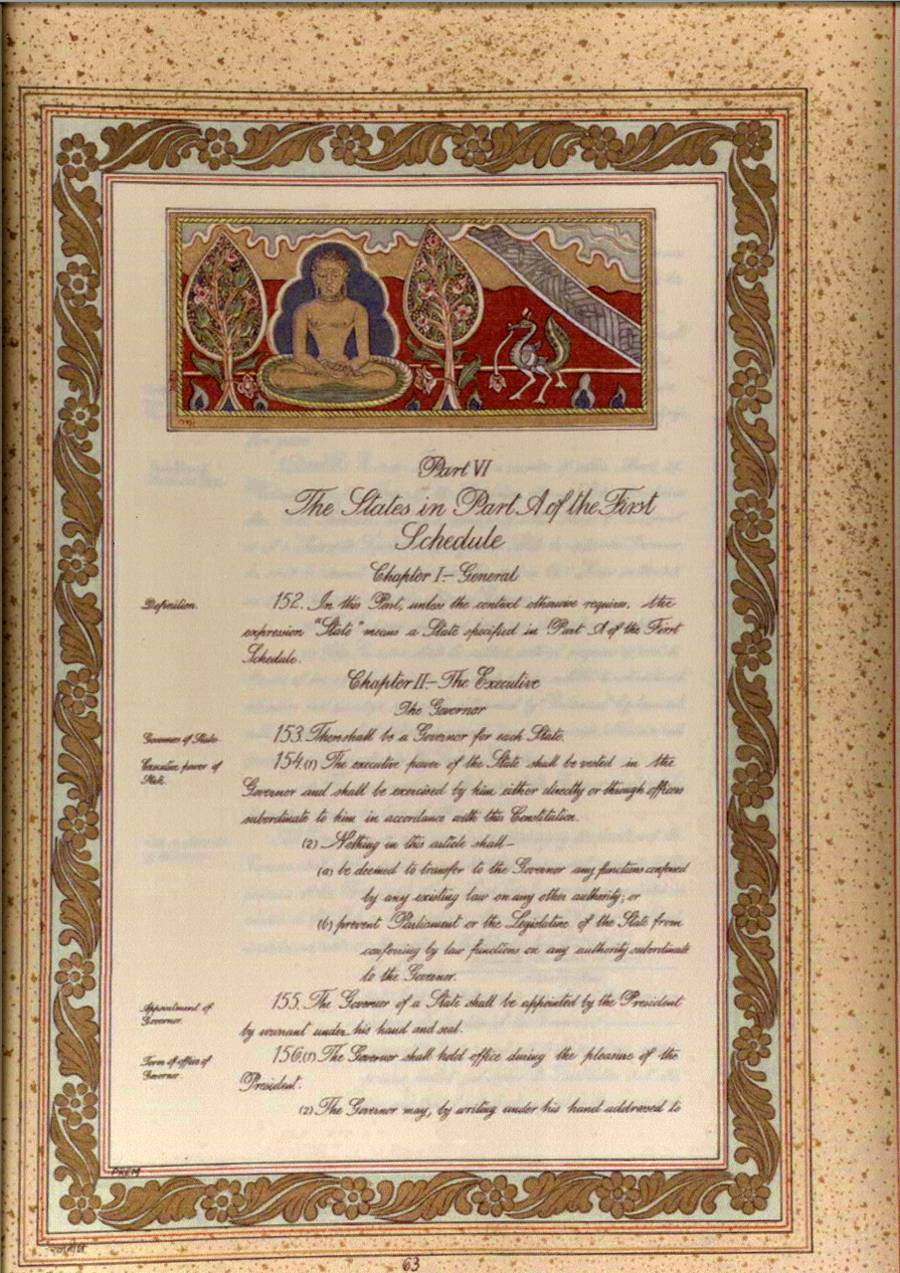 Part VI
The States in Part A of the First
Schedule
Chapter I.— General
Definition.
152. In this Part, unless the context otherwise requires, the
expression "State" means a State specified in Part A of the First
Schedule.
Chapter II.— The Executive
The Governor
Governors of States.
153. There shall be a Governor for each State.
Executive power of
State.
154.(1) The executive power of the State shall be vested in the
Governor and shall be exercised by him either directly or through officers
subordinate to him in accordance with this Constitution.
(2) Nothing in this article shall—
(a) be deemed to transfer to the Governor any functions conferred
by any existing law on any other authority; or
(b) prevent Parliament or the Legislature of the State from
conferring by law functions on any authority subordinate
to the Governor.
Appointment of
Governor.
155. The Governor of a State shall be appointed by the President
by warrant under his hand and seal.
Term of office of
Governor.
156.(1) The Governor shall hold office during the pleasure of the
President.
(2) The Governor may, by writing under his hand addressed to
PREM
63